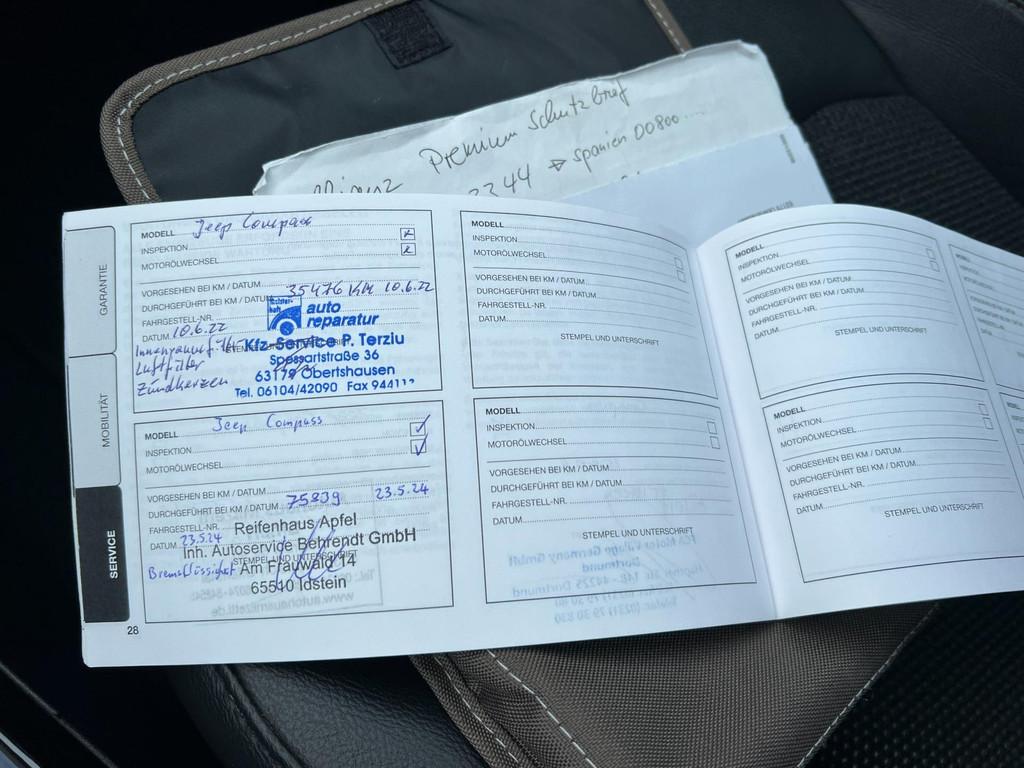 Premium Schutzbrief
2344 → Spanien 00800....
GARANTIE
MOBILITÄT
SERVICE
MODELL Jeep Compass
INSPEKTION x
MOTORÖLWECHSEL x
VORGESEHEN BEI KM / DATUM
DURCHGEFÜHRT BEI KM / DATUM 35476 KM 10.6.22
FAHRGESTELL-NR.
DATUM 10.6.22
auto
reparatur
Kfz-Service P. Terziu
Spessartstraße 36
63179 Obertshausen
Tel. 06104/42090 Fax 94411
Luftfilter
Zündkerzen
MODELL Jeep Compass
INSPEKTION ✓
MOTORÖLWECHSEL ✓
VORGESEHEN BEI KM / DATUM
DURCHGEFÜHRT BEI KM / DATUM 75839 23.5.24
FAHRGESTELL-NR.
DATUM 23.5.24
STEMPEL UND UNTERSCHRIFT
Reifenhaus Apfel
Inh. Autoservice Behrendt GmbH
Am Frauwald 14
65510 Idstein
Bremsflüssigkeit
28
MODELL
INSPEKTION
MOTORÖLWECHSEL
VORGESEHEN BEI KM / DATUM
DURCHGEFÜHRT BEI KM / DATUM
FAHRGESTELL-NR.
DATUM
STEMPEL UND UNTERSCHRIFT
MODELL
INSPEKTION
MOTORÖLWECHSEL
VORGESEHEN BEI KM / DATUM
DURCHGEFÜHRT BEI KM / DATUM
FAHRGESTELL-NR.
DATUM
STEMPEL UND UNTERSCHRIFT
MODELL
INSPEKTION
MOTORÖLWECHSEL
VORGESEHEN BEI KM / DATUM
DURCHGEFÜHRT BEI KM / DATUM
FAHRGESTELL-NR.
DATUM
STEMPEL UND UNTERSCHRIFT
MODELL
INSPEKTION
MOTORÖLWECHSEL
VORGESEHEN BEI KM / DATUM
DURCHGEFÜHRT BEI KM / DATUM
FAHRGESTELL-NR.
DATUM
STEMPEL UND UNTERSCHRIFT